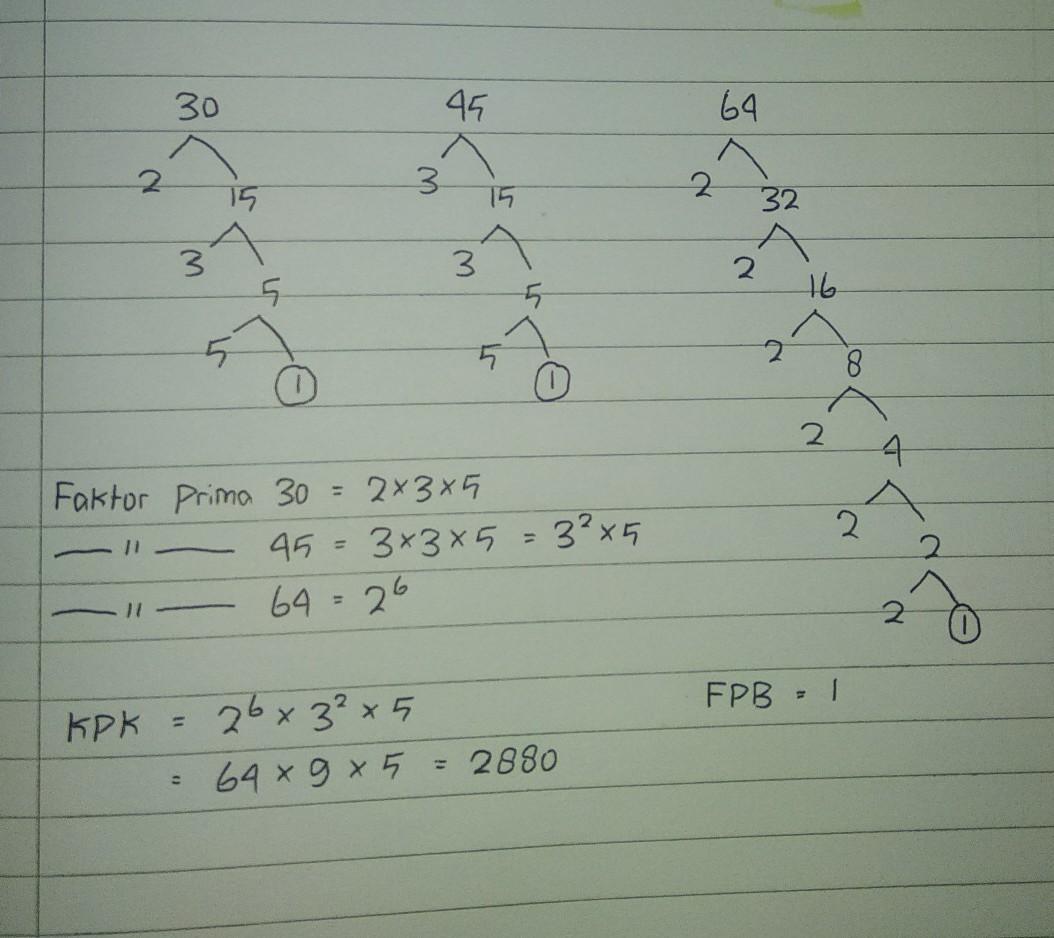 30 45 64
2 15 3 15 2 32
3 5 3 5 2 16
5 1 5 1 2 8
2 4
2 2
2 1
Faktor Prima 30 = 2×3×5
— " — 45 = 3×3×5 = 3²×5
— " — 64 = 2⁶
FPB = 1
KPK = 2⁶ × 3² × 5
= 64 × 9 × 5 = 2880